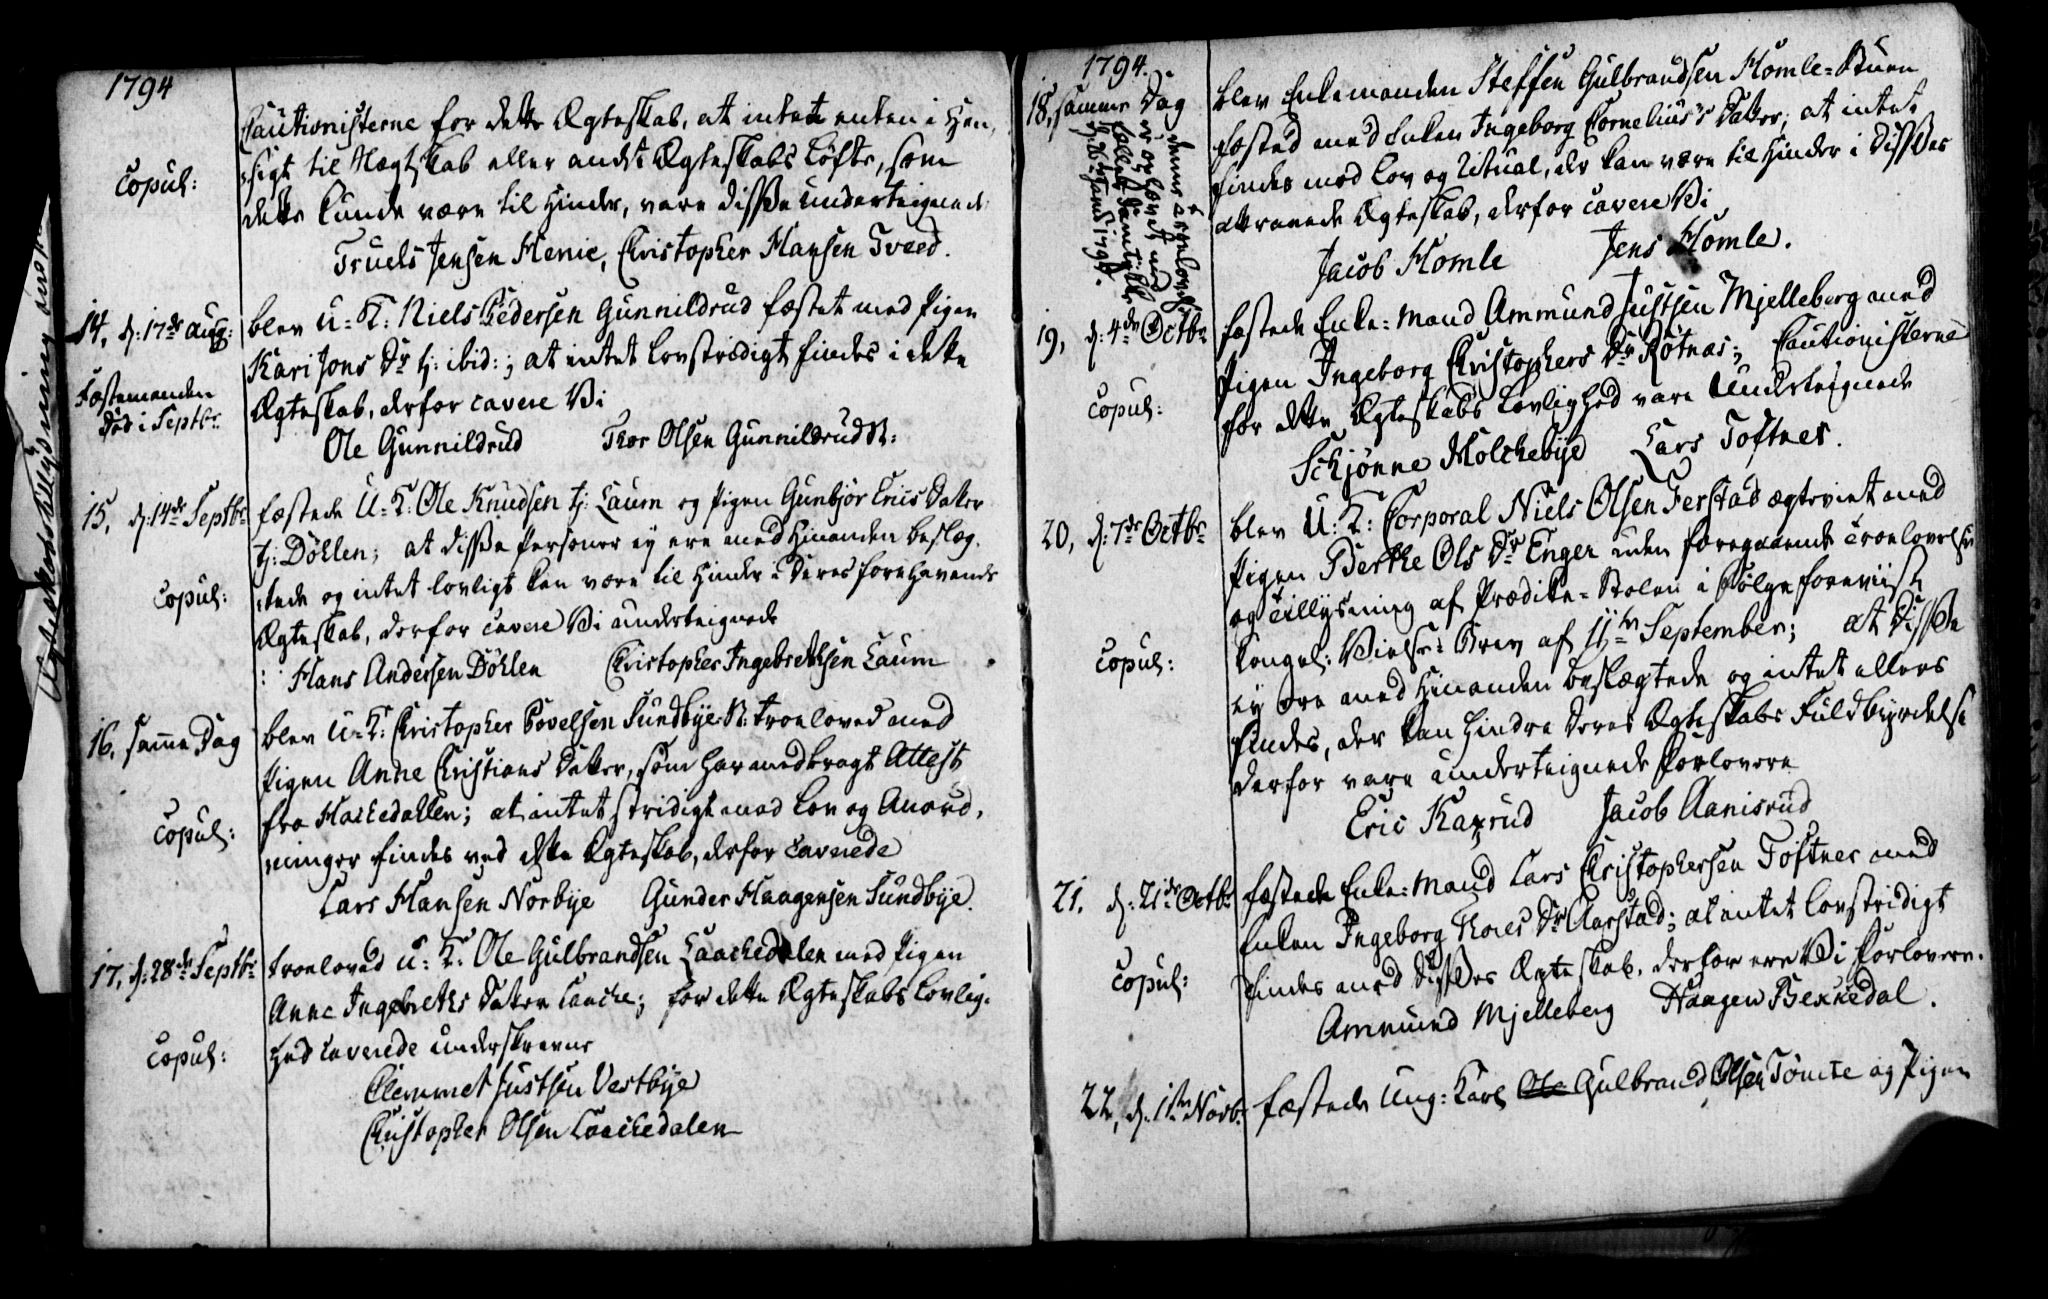 1794
Cautionisterne for dette Ægteskab, at intet enten i Hen,
sigt til Slægtskab eller andet Ægteskabs Løfte, som
Copul:
dette kunde være til Hinder, vare disse underteignede:
Truels Jensen Henie, Christopher Hansen Tveed.
14, d: 17de Aug: blev U: K: Niels Pedersen Gunnildrud fæstet med Pigen
Kari Jons Dr tj: ibid:; at intet lovstridigt findes i dette
Fæstemanden
død i Septbr
Ægteskab, derfor cavere Vi
Ole Gunnildrud Thor Olsen Gunnildrud N:
15, d: 14de Septbr fæstede U: K: Ole Knudsen tj: Laum og Pigen Gunbjør Erics Datter
tj: Döhlen; at disse Personer ey ere med hinanden beslæg-
Copul:
tede og intet lovligt kan være til Hinder i deres forehavende
Ægteskab, derfor cavere Vi underteignede
Hans Andersen Döhlen Christopher Ingebrethsen Laum
16, samme Dag blev U: K: Christopher Povelsen Sundbye N: troeloved med
Pigen Anne Christians Datter, som har medbragt Attest
Copul:
fra Hackedallen; at intet stridigt mod Lov og Anord,
ninger findes ved dette Ægteskab, derfor caverede
Lars Hansen Norbye Gunder Haagensen Sundbye.
17, d: 28de Septbr troeloved U: K: Ole Gulbrandsen Laachedalen med Pigen
Anne Ingebreths Datter Laache; for dette Ægteskabs Lovlig-
Copul:
hed caverede underskrevne
Clemmet Justsen Vestbye
Christopher Olsen Laachedalen
1794.
18, samme Dag blev Enkemanden Steffen Gulbrandsen Homle-Stuen
fæsted med Enken Ingeborg Cornelius's Datter; at intet
findes mod Lov og Ritual, der kan være til Hinder i disses
attraaede Ægteskab, derfor cavere Vi
Jacob Homle Jens Homle.
denne Troelovelse
er ophævet med
fælleds Samtykke
19, d: 4de Octbr fæstede Enke-Mand Ammund Justsen Mjelleberg med
Pigen Ingeborg Christophers Dr Rötnes; Cautionisterne
Copul:
for dette Ægteskabs Lovlighed vare Underteignede
Schjønne Holchebye Lars Toftner.
20, d: 7de Octbr blev U: K: Corporal Niels Olsen Ferstad ægteviet med
Pigen Berthe Ols Dr Enger uden foregaaende Troelovelse
og Tillysning af Prædike-Stolen i Følge foreviist
Copul:
Kongel: Vielse-Brev af 11te September; at disse
ey ere med hinanden beslægtede og intet ellers
findes, der kan hindre deres Ægteskabs Fuldbyrdelse
derfor vare underteignede Forlovere
Eric Kaxrud Jacob Aanisrud
21, d: 21de Octbr fæstede Enke-Mand Lars Christophersen Toftner med
Enken Ingeborg Thores Dr Aarstad; at intet lovstridigt
Copul:
findes med disses Ægteskab, derfor ere Vi Forlovere.
Ammund Mjelleberg Haagen Bexkedal.
22, d: 1ste Novbr fæstede Ung-Karl Ole Gulbrand Olsen Tömte og Pigen